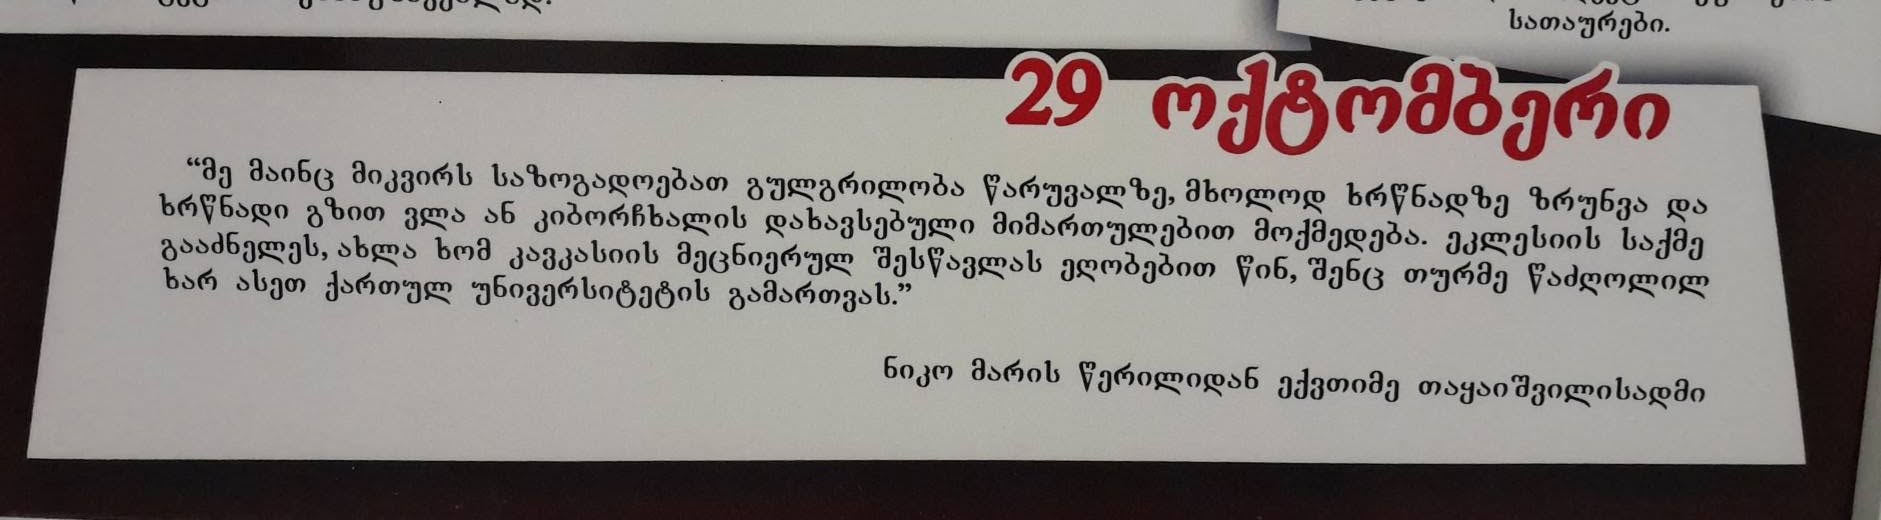 სათაურები.
29 ოქტომბერი
“მე მაინც მიკვირს საზოგადოებათ გულგრილობა წარუვალზე, მხოლოდ ხრწნადზე ზრუნვა და
ხრწნადი გზით ვლა ან კიბორჩხალის დახავსებული მიმართულებით მოქმედება. ეკლესიის საქმე
გააძნელეს, ახლა ხომ კავკასიის მეცნიერულ შესწავლას ეღობებით წინ, შენც თურმე წაძღოლილ
ხარ ასეთ ქართულ უნივერსიტეტის გამართვას.”
ნიკო მარის წერილიდან ექვთიმე თაყაიშვილისადმი